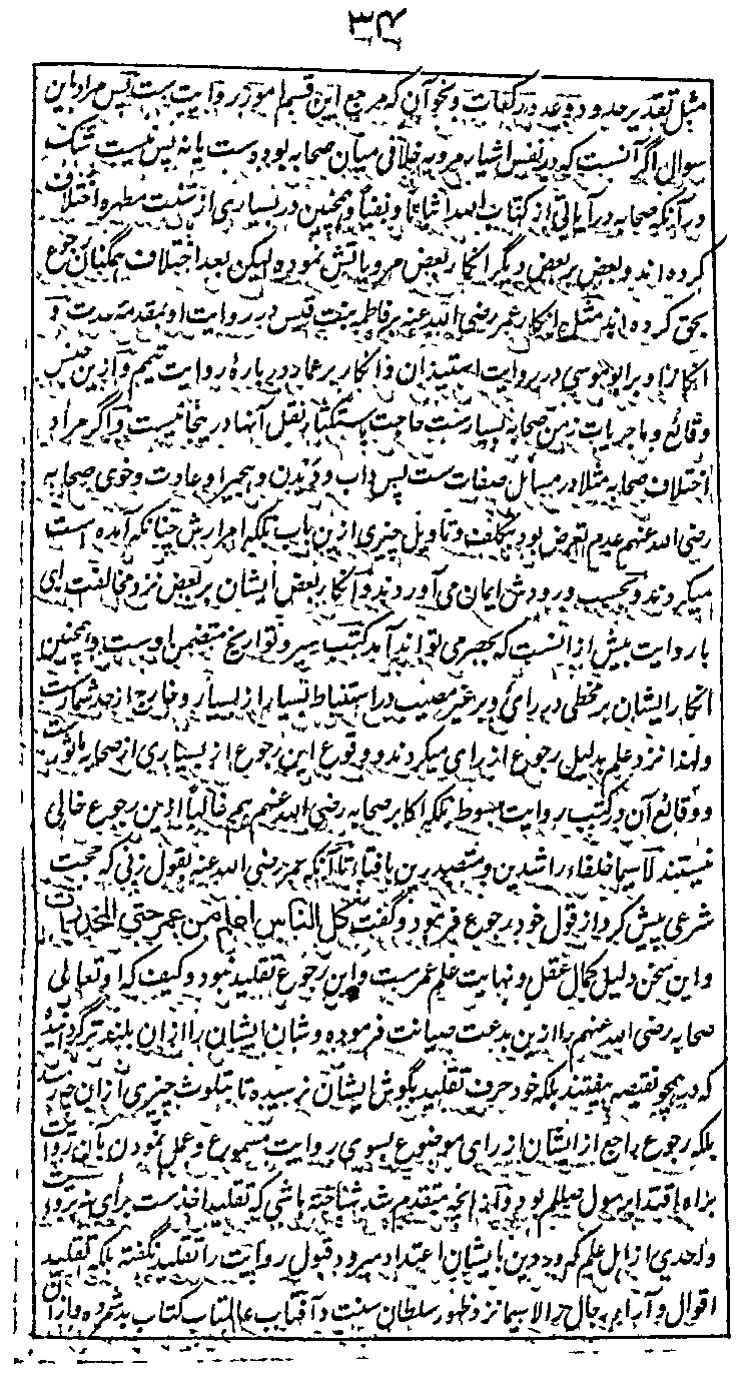 مثل تقدیر حدود و عدد رکعات و نحو آن که مرجع این قسم امور روایت ست پس مراد باین
سوال اگر آنست که در نفس اشیاء مرویه خلافی میان صحابه بوده ست یا نه پس نیست شک
در آنکه صحابه در آیاتی از کتاب الله اثباتا و نفیا و همچنین در بسیاری از سنت مطهره اختلاف
کرده اند و بعض بر بعض دیگر انکار بعض مرویاتش نموده لیکن بعد اختلاف همگنان رجوع
بحق کرده اند مثل انکار عمر رضی الله عنه بر فاطمه بنت قیس در روایت او بمقدمه عدت و
انکار او بر ابو موسی در روایت استیذان و انکار بر عمار در بارهٔ روایت تیمم و ازین جنس
وقائع و ماجریات زمن صحابه بسیارست حاجت باستکثار نقل آنها درینجا نیست و اگر مراد
اختلاف صحابه مثلا در مسائل صفات ست پس داب و دیدن و هجیرا و عادت و خوی صحابه
رضی الله عنهم عدم تعرض بود بتکلف و تاویل چیزی ازین باب بلکه امرارش چنانکه آمده است
میکردند و بحسب ورودش ایمان می آوردند و انکار بعض ایشان بر بعض نزد مخالفت رای
با روایت بیش از انست که بحصر می تواند آمد کتب سیر و تواریخ متضمن اوست و همچنین
انکار ایشان بر مخطی در رای و بر غیر مصیب در استنباط بسیار از بسیار و خارج از حد شمارست
ولهذا نزد علم بدلیل رجوع از رای میکردند و وقوع این رجوع از بسیاری از صحابه ماثورست
و وقائع آن در کتب روایت مبسوط بلکه اکابر صحابه رضی الله عنهم هم غالبا ازین رجوع خالی
نیستند لاسیما خلفاء راشدین و متصدرین بافتا تا آنکه عمر رضی الله عنه بقول زنی که حجت
شرعی پیش کرد از قول خود رجوع فرمود و گفت کل الناس اعلم من عمر حتی المخدرات
و این سخن دلیل کمال عقل و نهایت علم عمرست و این رجوع تقلید نبود و کیف که او تعالی
صحابه رضی الله عنهم را ازین بدعت صیانت فرموده و شان ایشان را ازان بلند تر گردانیده
که در همچو نقیصه بیفتند بلکه خود حرف تقلید بگوش ایشان نرسیده تا بتلوث چیزی ازان چه رسد
بلکه رجوع راجع از ایشان از رای موضوع بسوی روایت مسموع و عمل نمودن بآن روایت
براه اقتدا برسول صلعم بود و از انچه متقدم شد شناخته باشی که تقلید اخذ ست برای نه بروایت
و احدی از اهل علم که در دین بایشان اعتداد میرود قبول روایت را تقلید نگفته بلکه تقلید
اقوال و آراء رجال را لاسیما نزد ظهور سلطان سنت و آفتاب عالمتاب کتاب بد شمرده و ازان